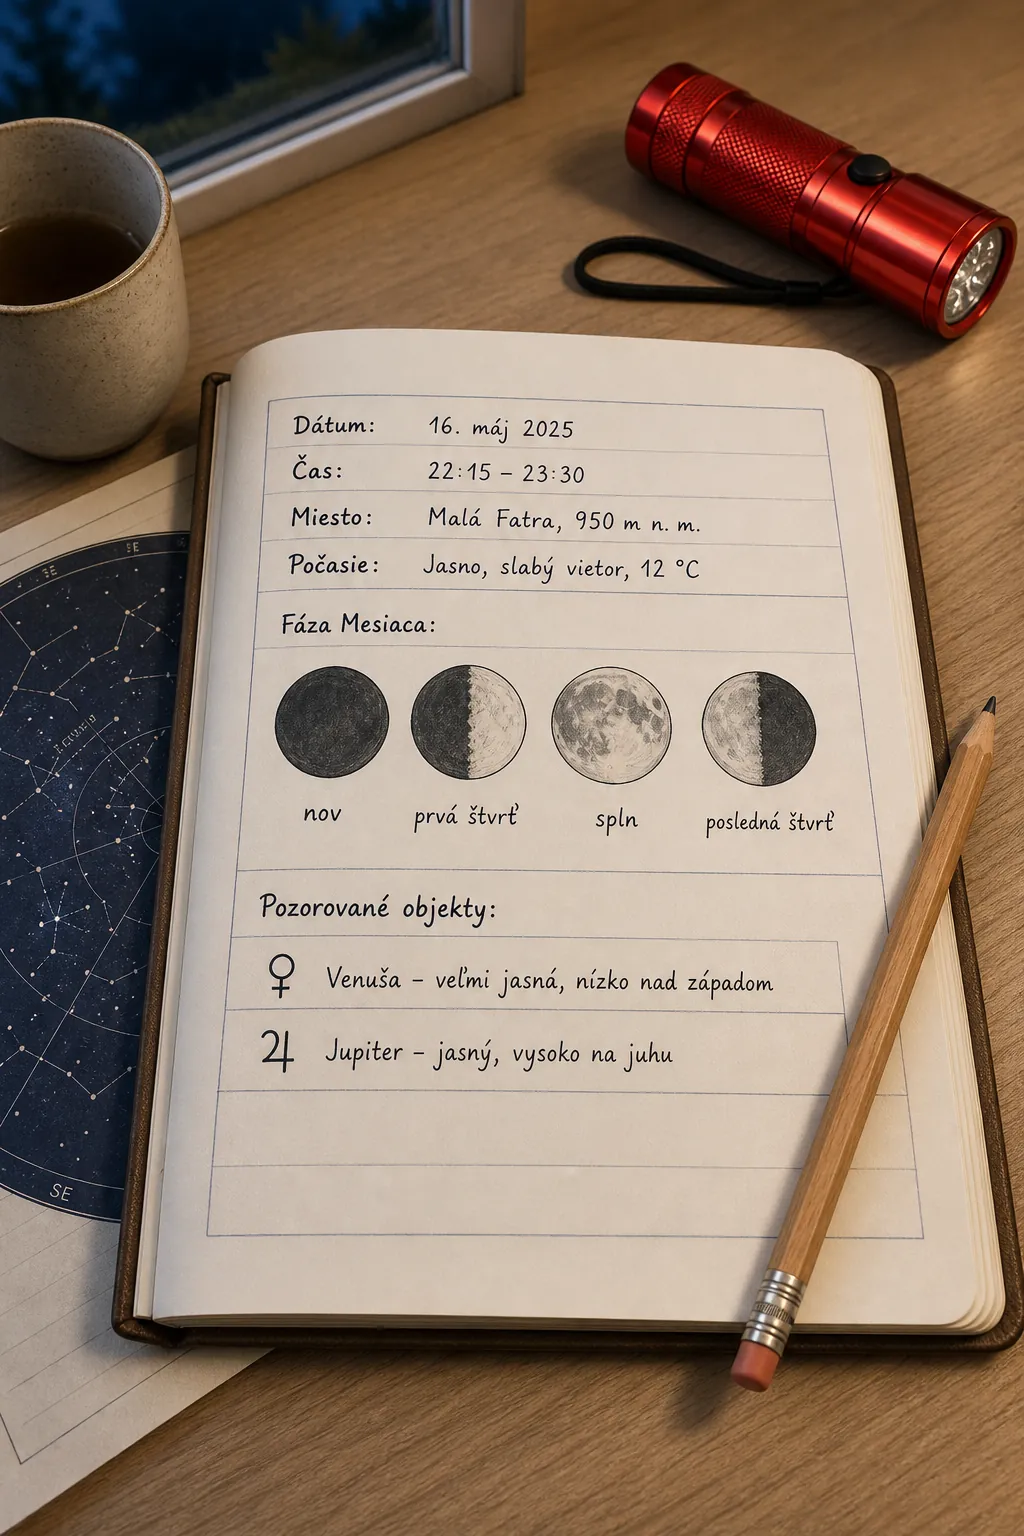 Dátum: 16. máj 2025
Čas: 22:15 – 23:30
Miesto: Malá Fatra, 950 m n. m.
Počasie: Jasno, slabý vietor, 12 °C
Fáza Mesiaca:
nov prvá štvrť spln posledná štvrť
Pozorované objekty:
♀ Venuša – veľmi jasná, nízko nad západom
♃ Jupiter – jasný, vysoko na juhu
SE